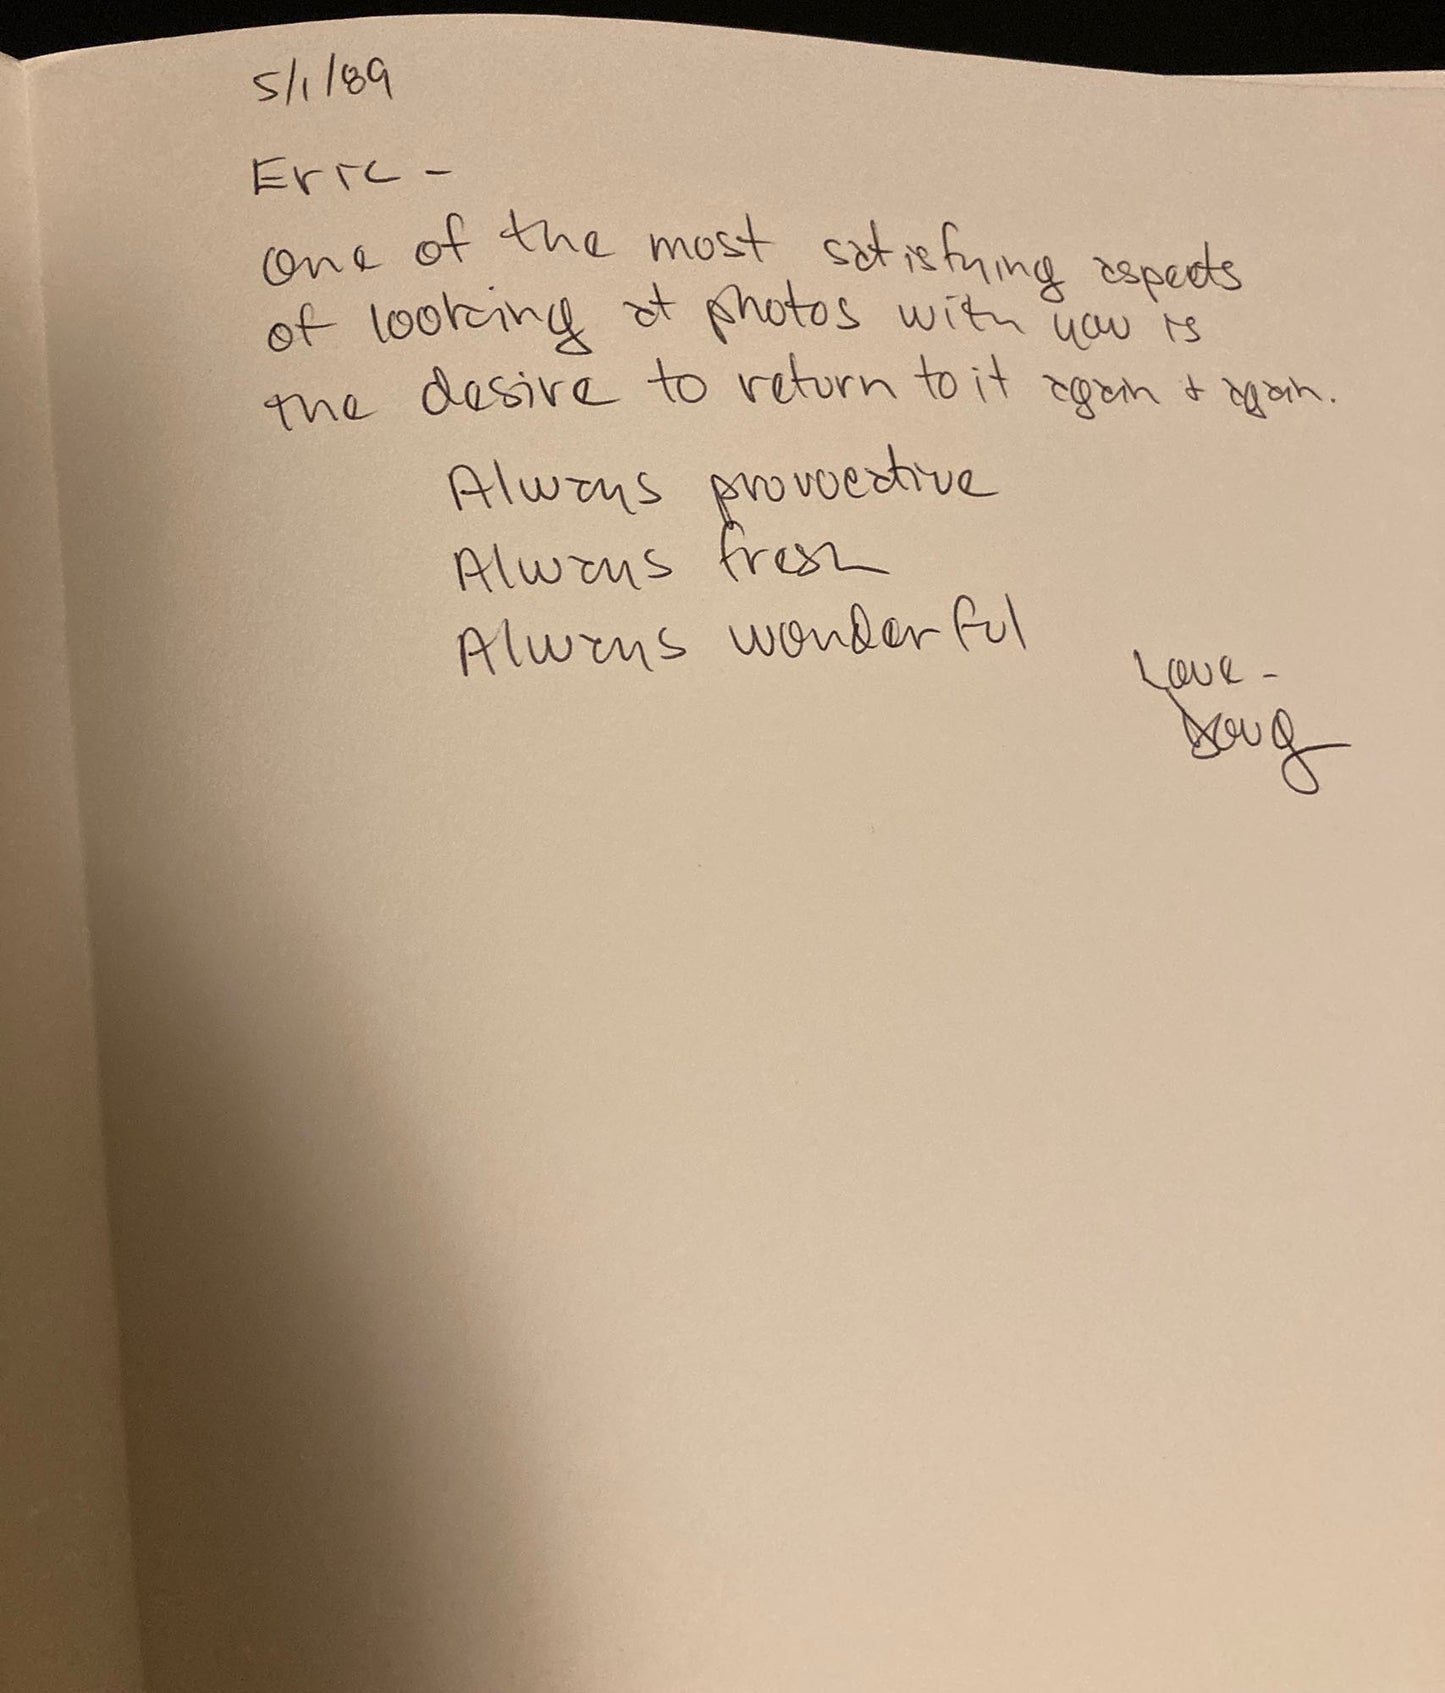 5/1/89
Eric -
One of the most satisfying aspects
of looking at photos with you is
the desire to return to it again + again.
Always provocative
Always fresh
Always wonderful
Love -
Doug